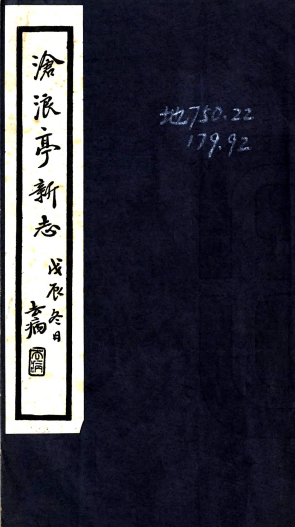 滄浪亭新志
戊辰冬日
去病
地750.22
179.92